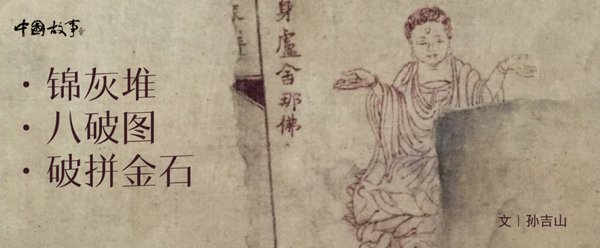 中國故事
· 锦灰堆
· 八破图
· 破拼金石
身盧舍那佛
文 | 孙吉山